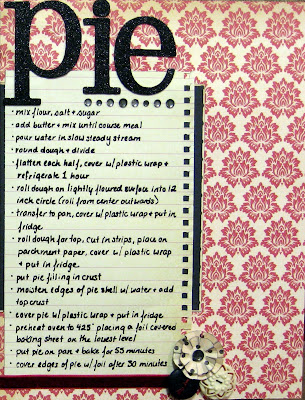 pie
• mix flour, salt + sugar
• add butter + mix until course meal
• pour water in slow steady stream
• round dough + divide
• flatten each half, cover w/ plastic wrap +
refrigerate 1 hour
• roll dough on lightly floured surface into 12
inch circle (roll from center outwards)
• transfer to pan, cover w/ plastic wrap + put in
fridge
• roll dough for top, cut in strips, place on
parchment paper, cover w/ plastic wrap
+ put in fridge.
• put pie filling in crust
• moisten edges of pie shell w/ water + add
top crust
• cover pie w/ plastic wrap + put in fridge
• preheat oven to 425° placing a foil covered
baking sheet on the lowest level
• put pie on pan + bake for 55 minutes
• cover edges of pie w/ foil after 30 minutes